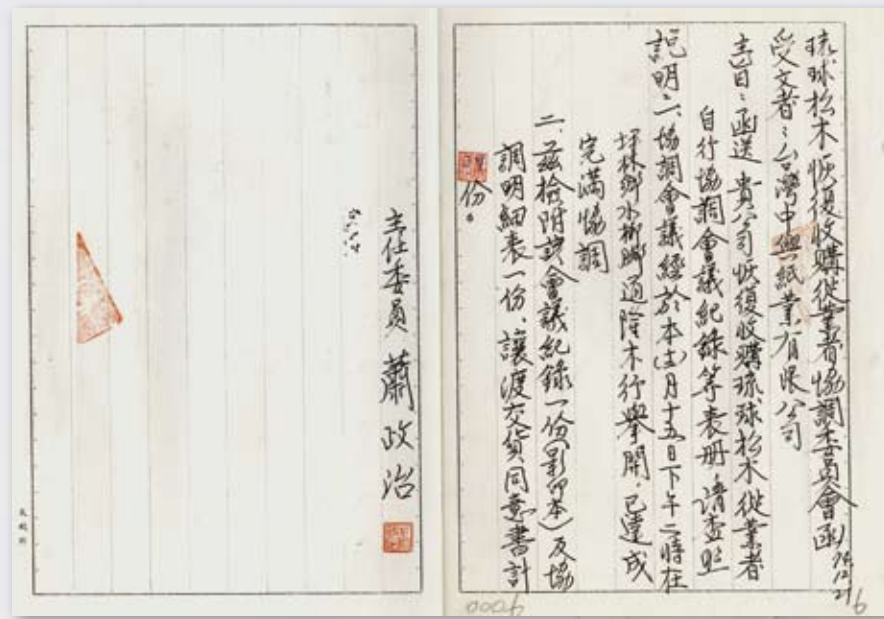 琉球松木恢復收購從業者協調委員會函
受文者：台灣中興紙業有限公司
主旨：函送 貴公司恢復收購琉球松木從業者
自行協調會議紀錄等表册，請查照
說明：一、協調會議經於本(十二)月十五日下午二時在
坪林鄉水柳腳通隆木行舉開，已達成
完滿協調
二、茲檢附該會議紀錄一份(影印本)及協
調明細表一份、讓渡交貨同意書計
份。
主任委員 蕭政治
0006
6